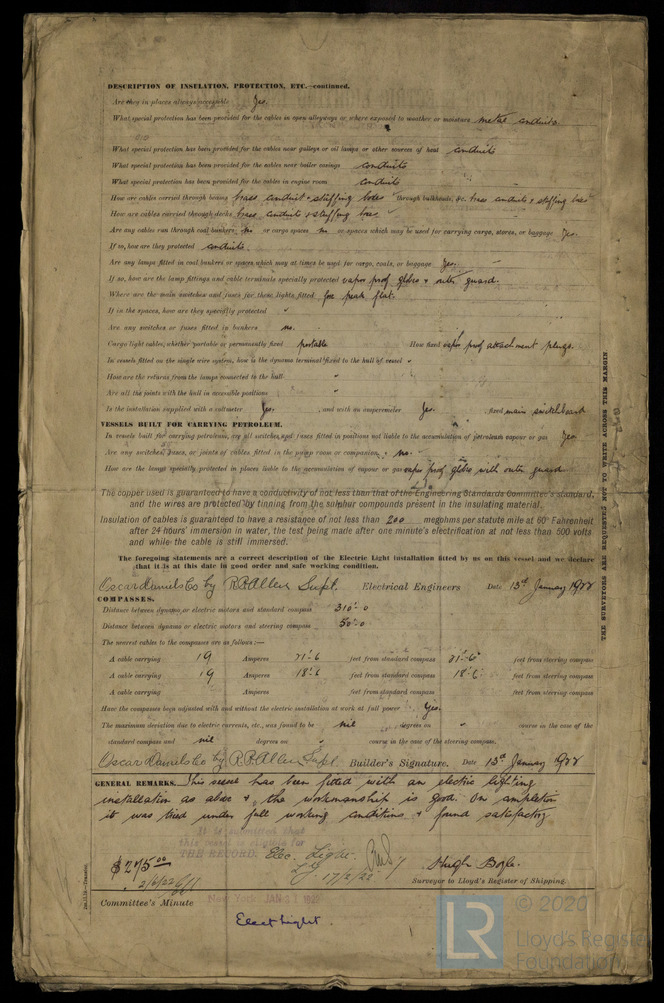 DESCRIPTION OF INSULATION, PROTECTION, ETC.—continued.
Are they in places always accessible Yes.
What special protection has been provided for the cables in open alleyways or where exposed to weather or moisture metal conduits.
What special protection has been provided for the cables near galleys or oil lamps or other sources of heat conduits
What special protection has been provided for the cables near boiler casings conduits
What special protection has been provided for the cables in engine room conduits
How are cables carried through beams brass conduit & stuffing boxes through bulkheads, &c. brass conduits & stuffing box
How are cables carried through decks brass conduits & stuffing box
Are any cables run through coal bunkers no or cargo spaces no or spaces which may be used for carrying cargo, stores, or baggage Yes.
If so, how are they protected conduits.
Are any lamps fitted in coal bunkers or spaces which may at times be used for cargo, coals, or baggage Yes.
If so, how are the lamp fittings and cable terminals specially protected vapor prof globe & outer guard.
Where are the main switches and fuses for these lights fitted fore peak flat.
If in the spaces, how are they specially protected
Are any switches or fuses fitted in bunkers no.
Cargo light cables, whether portable or permanently fixed portable How fixed vapor prof attachment plugs.
In vessels fitted on the single wire system, how is the dynamo terminal fixed to the hull of vessel
How are the returns from the lamps connected to the hull
Are all the joints with the hull in accessible positions
Is the installation supplied with a voltmeter Yes. , and with an amperemeter Yes. , fixed main switchboard
VESSELS BUILT FOR CARRYING PETROLEUM.
In vessels built for carrying petroleum, are all switches and fuses fitted in positions not liable to the accumulation of petroleum vapour or gas Yes
Are any switches, fuses, or joints of cables fitted in the pump room or companion no.
How are the lamps specially protected in places liable to the accumulation of vapour or gas vapor prof globe with outer guard
The copper used is guaranteed to have a conductivity of not less than that of the Engineering Standards Committee's standard,
and the wires are protected by tinning from the sulphur compounds present in the insulating material.
Insulation of cables is guaranteed to have a resistance of not less than 200 megohms per statute mile at 60° Fahrenheit
after 24 hours' immersion in water, the test being made after one minute's electrification at not less than 500 volts
and while the cable is still immersed.
The foregoing statements are a correct description of the Electric Light installation fitted by us on this vessel and we declare
that it is at this date in good order and safe working condition.
Oscar Daniels Co by R.P. Allen Supt. Electrical Engineers Date 13th January 1922
COMPASSES.
Distance between dynamo or electric motors and standard compass 310'-0
Distance between dynamo or electric motors and steering compass 50'-0
The nearest cables to the compasses are as follows:—
A cable carrying 19 Amperes 21'-6 feet from standard compass 21'-6" feet from steering compass
A cable carrying 19 Amperes 18'-6 feet from standard compass 18'-6 feet from steering compass
A cable carrying Amperes feet from standard compass feet from steering compass
Have the compasses been adjusted with and without the electric installation at work at full power Yes.
The maximum deviation due to electric currents, etc., was found to be nil degrees on course in the case of the
standard compass and nil degrees on course in the case of the steering compass.
Oscar Daniels Co by R.P. Allen Supt. Builder's Signature. Date 13th January 1922
GENERAL REMARKS. This vessel has been fitted with an electric lighting
installation as above & the workmanship is good. On completion
it was tried under full working conditions & found satisfactory
It is submitted that
this vessel is eligible for
THE RECORD. Elec. Light.
$275.00
2/6/22
17/2/22
Hugh Boyle.
Surveyor to Lloyd's Register of Shipping.
Committee's Minute New York JAN 31 1922
Elect Light.
THE SURVEYORS ARE REQUESTED NOT TO WRITE ACROSS THIS MARGIN
LR
© 2020
Lloyd's Register
Foundation